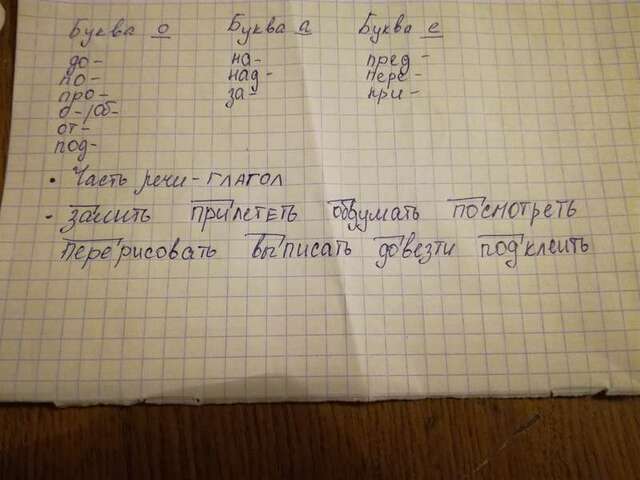 Буква о Буква а Буква е
до- на- пред-
по- над- пере-
про- за- при-
о-/об-
от-
под-
• Часть речи - ГЛАГОЛ
- залить прилететь обдумать посмотреть
перерисовать выписать довезти подклеить